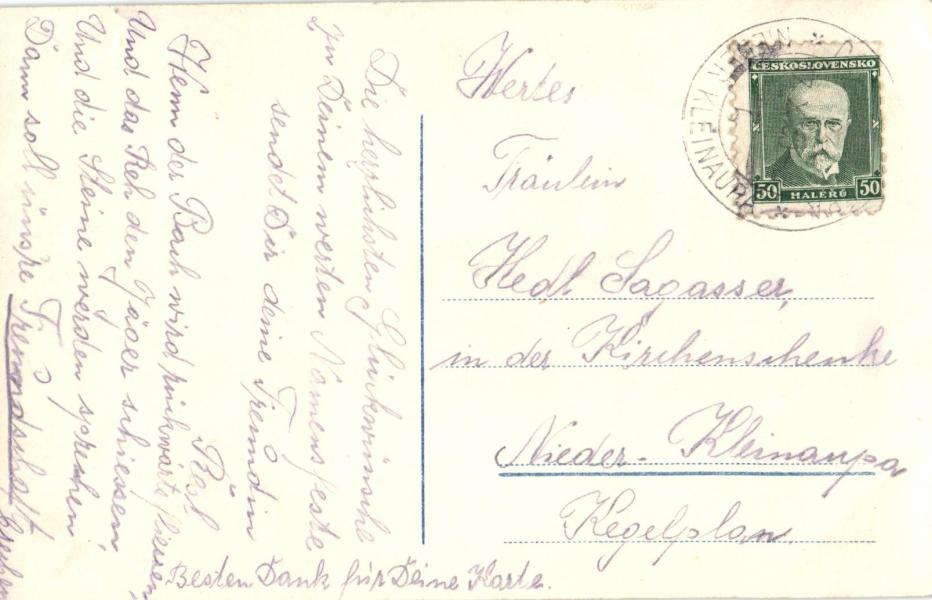 Die herzlichsten Glückwünsche
zu Deinem werten Namensfeste
sendet Dir deine Freundin
Resl
Wenn der Bach wird rückwärts fliessen,
Und das Reh den Jäger schiessen,
Und die Steine werden sprechen,
Dann soll unsre Freundschaft
brechen
Besten Dank für Deine Karte.
Wertes
Fräulein
Hedl Sagasser,
in der Kirchenschenke
Nieder-Kleinaupa
Kegelplan.
ČESKOSLOVENSKO
50 HALÉRŮ 50
NIEDER KLEINAUPA